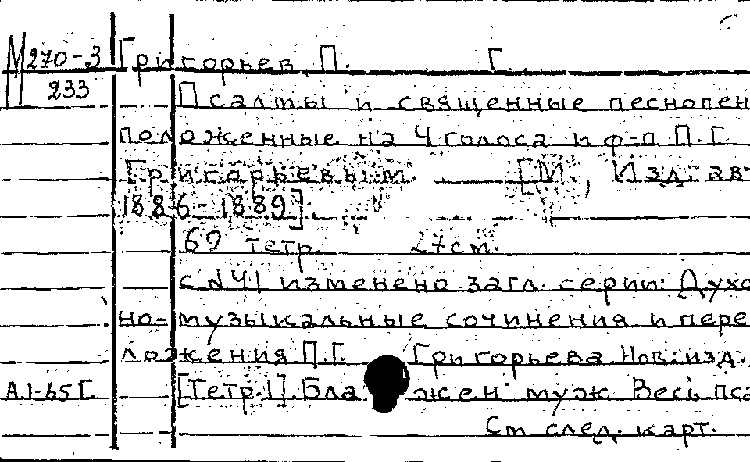 М 270-3 Григорьев, П. Г.
233 Псалмы и священные песнопен
положенные на 4 голоса и ф-п П.Г.
Григорьевым. [М., Изд. авт
1886-1889].
60 тетр. 27см.
с №41 изменено загл. серии: Духо
но-музыкальные сочинения и пере
ложения П.Г. Григорьева Нов. изд.
А.1-65 Г. [Тетр.1]. Блажен муж. Весь пса
См след. карт.